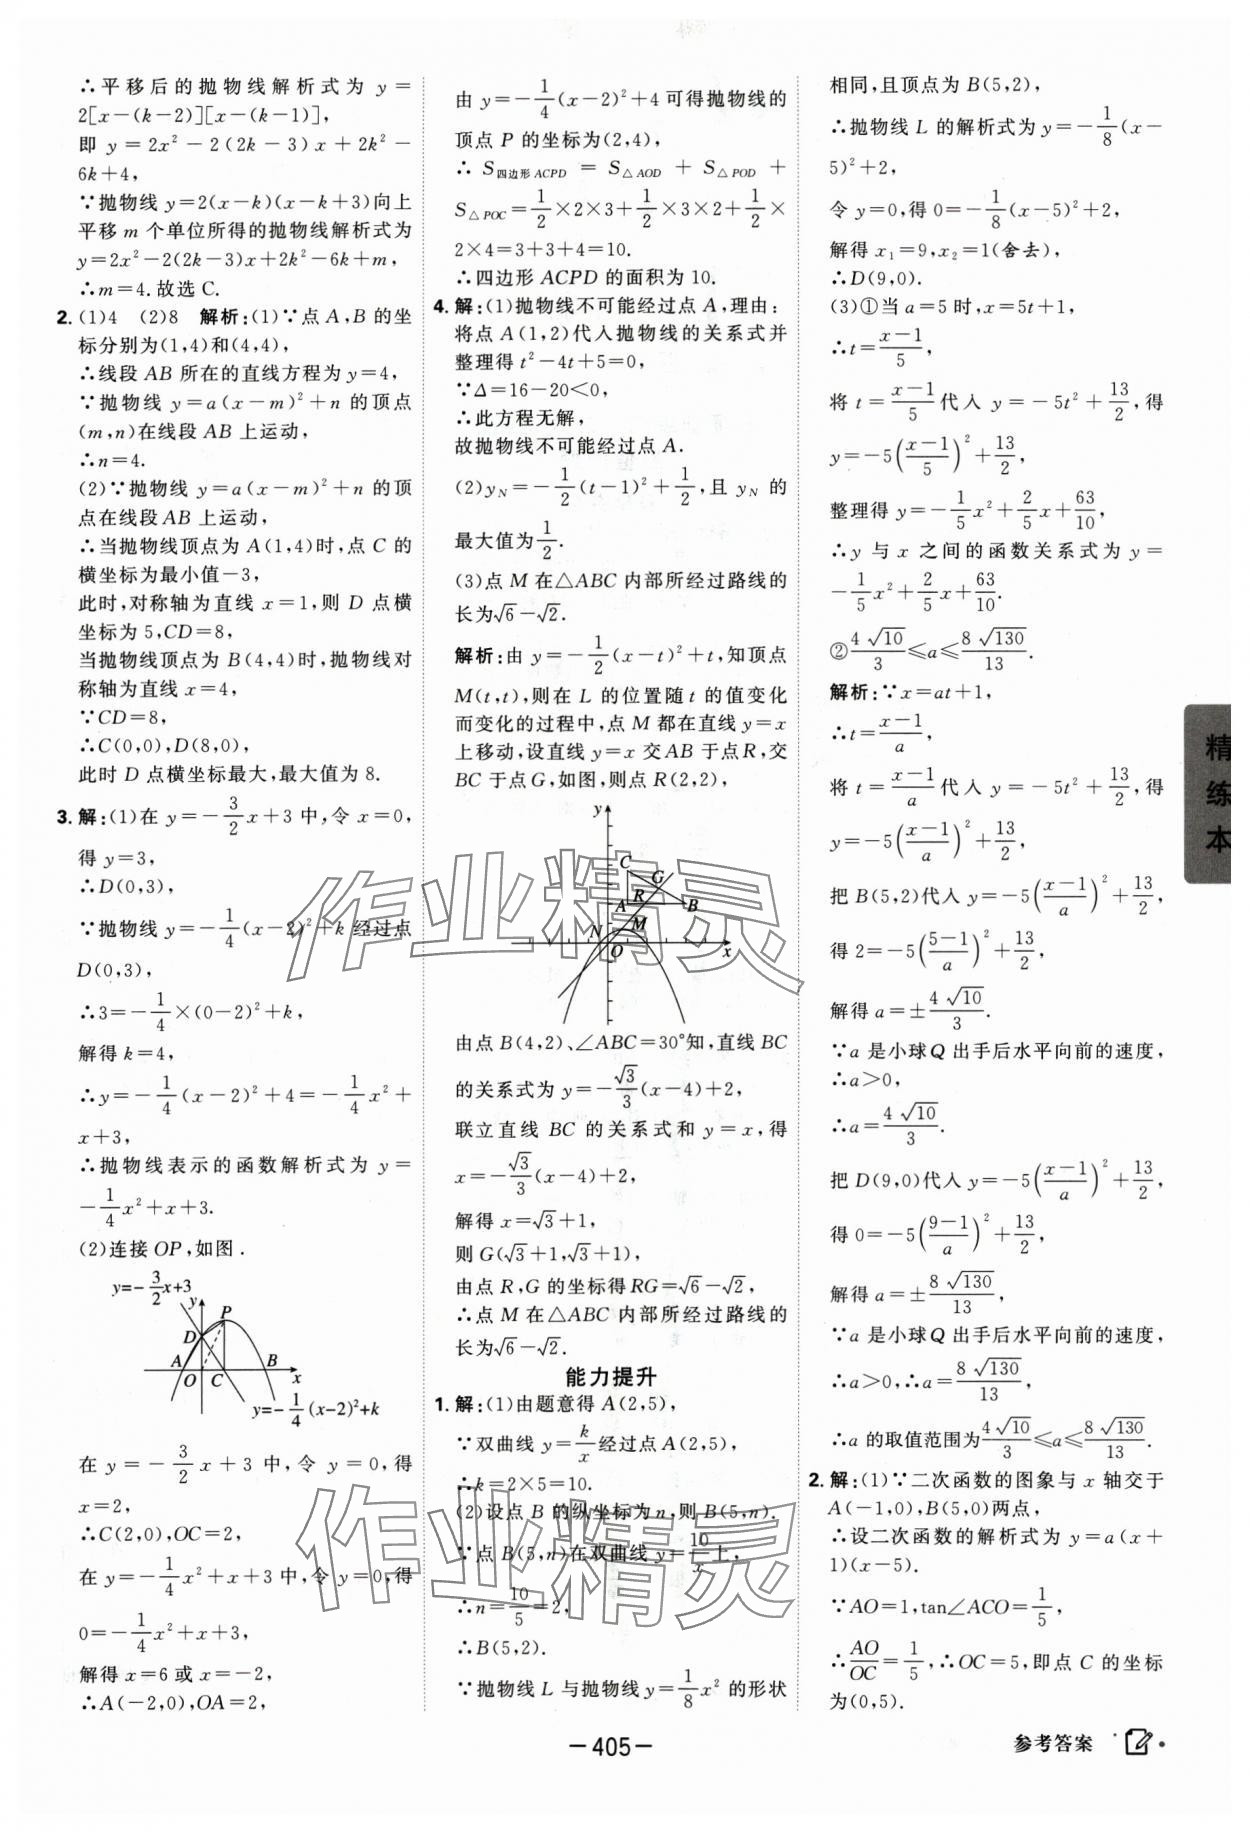 ∴平移后的抛物线解析式为 y=
2[x-(k-2)][x-(k-1)],
即 y=2x²-2(2k-3)x+2k²-
6k+4,
∵抛物线 y=2(x-k)(x-k+3)向上
平移 m 个单位所得的抛物线解析式为
y=2x²-2(2k-3)x+2k²-6k+m,
∴m=4.故选 C.
2. (1)4 (2)8 解析:(1)∵点 A,B 的坐
标分别为(1,4)和(4,4),
∴线段 AB 所在的直线方程为 y=4,
∵抛物线 y=a(x-m)²+n 的顶点
(m,n)在线段 AB 上运动,
∴n=4.
(2)∵抛物线 y=a(x-m)²+n 的顶
点在线段 AB 上运动,
∴当抛物线顶点为 A(1,4)时,点 C 的
横坐标为最小值-3,
此时,对称轴为直线 x=1,则 D 点横
坐标为 5,CD=8,
当抛物线顶点为 B(4,4)时,抛物线对
称轴为直线 x=4,
∵CD=8,
∴C(0,0),D(8,0),
此时 D 点横坐标最大,最大值为 8.
3. 解:(1)在 y=-3/2x+3 中,令 x=0,
得 y=3,
∴D(0,3),
∵抛物线 y=-1/4(x-2)²+k 经过点
D(0,3),
∴3=-1/4×(0-2)²+k,
解得 k=4,
∴y=-1/4(x-2)²+4=-1/4x²+
x+3,
∴抛物线表示的函数解析式为 y=
-1/4x²+x+3.
(2)连接 OP,如图.
y=-3/2x+3
y
P
D
A
B
O C
x
y=-1/4(x-2)²+k
在 y=-3/2x+3 中,令 y=0,得
x=2,
∴C(2,0),OC=2,
在 y=-1/4x²+x+3 中,令 y=0,得
0=-1/4x²+x+3,
解得 x=6 或 x=-2,
∴A(-2,0),OA=2,
由 y=-1/4(x-2)²+4 可得抛物线的
顶点 P 的坐标为(2,4),
∴S四边形ACPD=S△AOD+S△POD+
S△POC=1/2×2×3+1/2×3×2+1/2×
2×4=3+3+4=10.
∴四边形 ACPD 的面积为 10.
4. 解:(1)抛物线不可能经过点 A,理由:
将点 A(1,2)代入抛物线的关系式并
整理得 t²-4t+5=0,
∵Δ=16-20<0,
∴此方程无解,
故抛物线不可能经过点 A.
(2)yN=-1/2(t-1)²+1/2,且 yN 的
最大值为1/2.
(3)点 M 在△ABC 内部所经过路线的
长为√6-√2.
解析:由 y=-1/2(x-t)²+t,知顶点
M(t,t),则在 L 的位置随 t 的值变化
而变化的过程中,点 M 都在直线 y=x
上移动,设直线 y=x 交 AB 于点 R,交
BC 于点 G,如图,则点 R(2,2),
y
C
G
R
A
B
N M
O
x
由点 B(4,2)、∠ABC=30°知,直线 BC
的关系式为 y=-√3/3(x-4)+2,
联立直线 BC 的关系式和 y=x,得
x=-√3/3(x-4)+2,
解得 x=√3+1,
则 G(√3+1,√3+1),
由点 R,G 的坐标得 RG=√6-√2,
∴点 M 在△ABC 内部所经过路线的
长为√6-√2.
能力提升
1. 解:(1)由题意得 A(2,5),
∵双曲线 y=k/x经过点 A(2,5),
∴k=2×5=10.
(2)设点 B 的纵坐标为 n,则 B(5,n).
∵点 B(5,n)在双曲线 y=10/x上,
∴n=10/5=2,
∴B(5,2).
∵抛物线 L 与抛物线 y=1/8x² 的形状
相同,且顶点为 B(5,2),
∴抛物线 L 的解析式为 y=-1/8(x-
5)²+2,
令 y=0,得 0=-1/8(x-5)²+2,
解得 x₁=9,x₂=1(舍去),
∴D(9,0).
(3)①当 a=5 时,x=5t+1,
∴t=(x-1)/5,
将 t=(x-1)/5代入 y=-5t²+13/2,得
y=-5((x-1)/5)²+13/2,
整理得 y=-1/5x²+2/5x+63/10,
∴y 与 x 之间的函数关系式为 y=
-1/5x²+2/5x+63/10.
②4√10/3≤a≤8√130/13.
解析:∵x=at+1,
∴t=(x-1)/a,
将 t=(x-1)/a代入 y=-5t²+13/2,得
y=-5((x-1)/a)²+13/2,
把 B(5,2)代入 y=-5((x-1)/a)²+13/2,
得 2=-5((5-1)/a)²+13/2,
解得 a=±4√10/3.
∵a 是小球 Q 出手后水平向前的速度,
∴a>0,
∴a=4√10/3.
把 D(9,0)代入 y=-5((x-1)/a)²+13/2,
得 0=-5((9-1)/a)²+13/2,
解得 a=±8√130/13,
∵a 是小球 Q 出手后水平向前的速度,
∴a>0,∴a=8√130/13,
∴a 的取值范围为4√10/3≤a≤8√130/13.
2. 解:(1)∵二次函数的图象与 x 轴交于
A(-1,0),B(5,0)两点,
∴设二次函数的解析式为 y=a(x+
1)(x-5).
∵AO=1,tan∠ACO=1/5,
∴AO/OC=1/5,∴OC=5,即点 C 的坐标
为(0,5).
精练本
作业精灵
作业精灵
-405-
参考答案